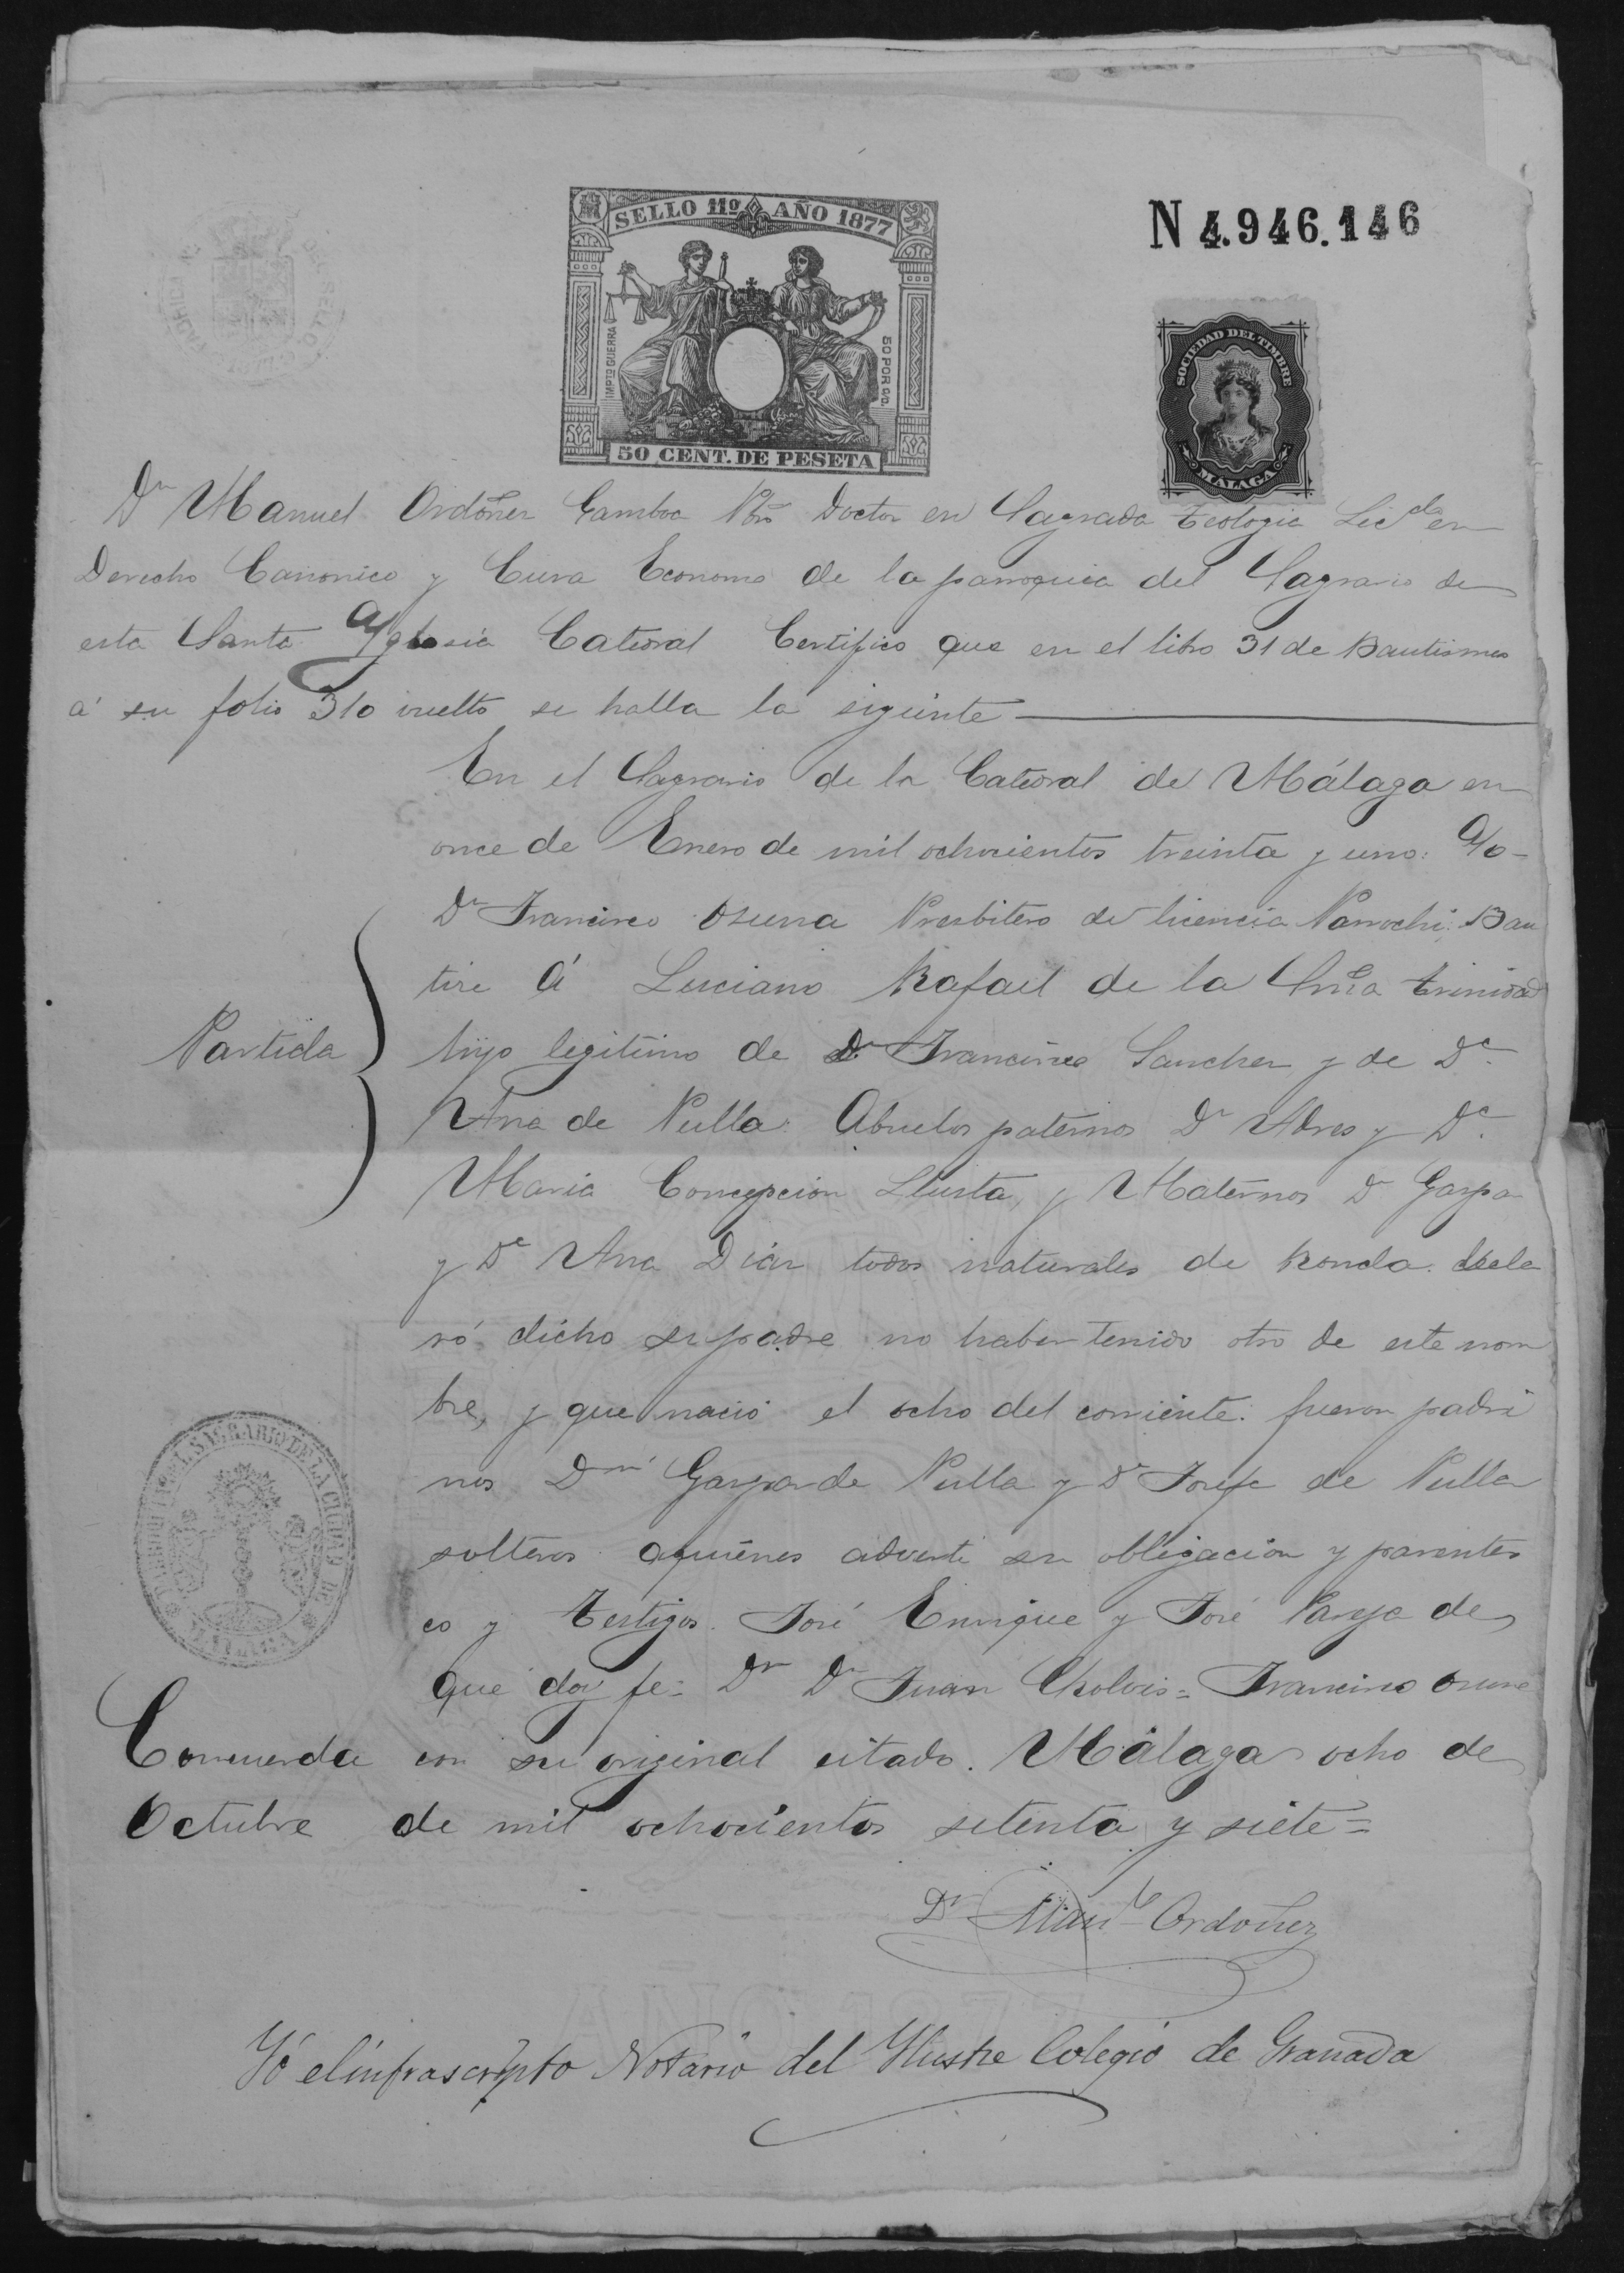 SELLO 11º AÑO 1877
IMPTO GUERRA
50 POR 00.
50 CENT. DE PESETA
N 4.946.146
SOCIEDAD DEL TIMBRE
MÁLAGA
Dn Manuel Ordoñez Gamboa Pbro Doctor en Sagrada Teologia Licdo en
Derecho Canonico y Cura Economo de la parroquia del Sagrario de
esta Santa Yglesia Catedral Certifico que en el libro 31 de Bautismos
á su folio 310 vuelto se halla la siguiente
En el Sagrario de la Catedral de Málaga en
once de Enero de mil ochocientos treinta y uno: Yo
Dn Francisco Osuna Presbitero de licencia Parrochi: Bau
tice á Luciano Rafael de la Sma trinidad
Partida
hijo legitimo de Dn Francisco Sanchez y de Da
Ana de Pulla. Abuelos paternos Dn Adres y Da
Maria Concepcion Llusta, y Maternos Dn Gaspa
y Da Ana Diaz todos naturales de Ronda. Decla
ró dicho su padre no haber tenido otro de este nom
bre, y que nació el ocho del corriente: fueron padri
nos Dn Gaspar de Pulla y Da Josefa de Pulla
solteros aquienes adverti su obligacion y parentes
co y testigos. José Enrique y José Pareja de
que doy fe= Dr Dn Juan = Francisco Osuna
PARROQUIA DEL SAGRARIO DE LA CIUDAD DE
MALAGA
Concuerda con su original citado. Málaga ocho de
Octubre de mil ochocientos setenta y siete=
Dr Manl Ordoñez
Yó el infrascripto Notario del Ylustre Colegio de Granada